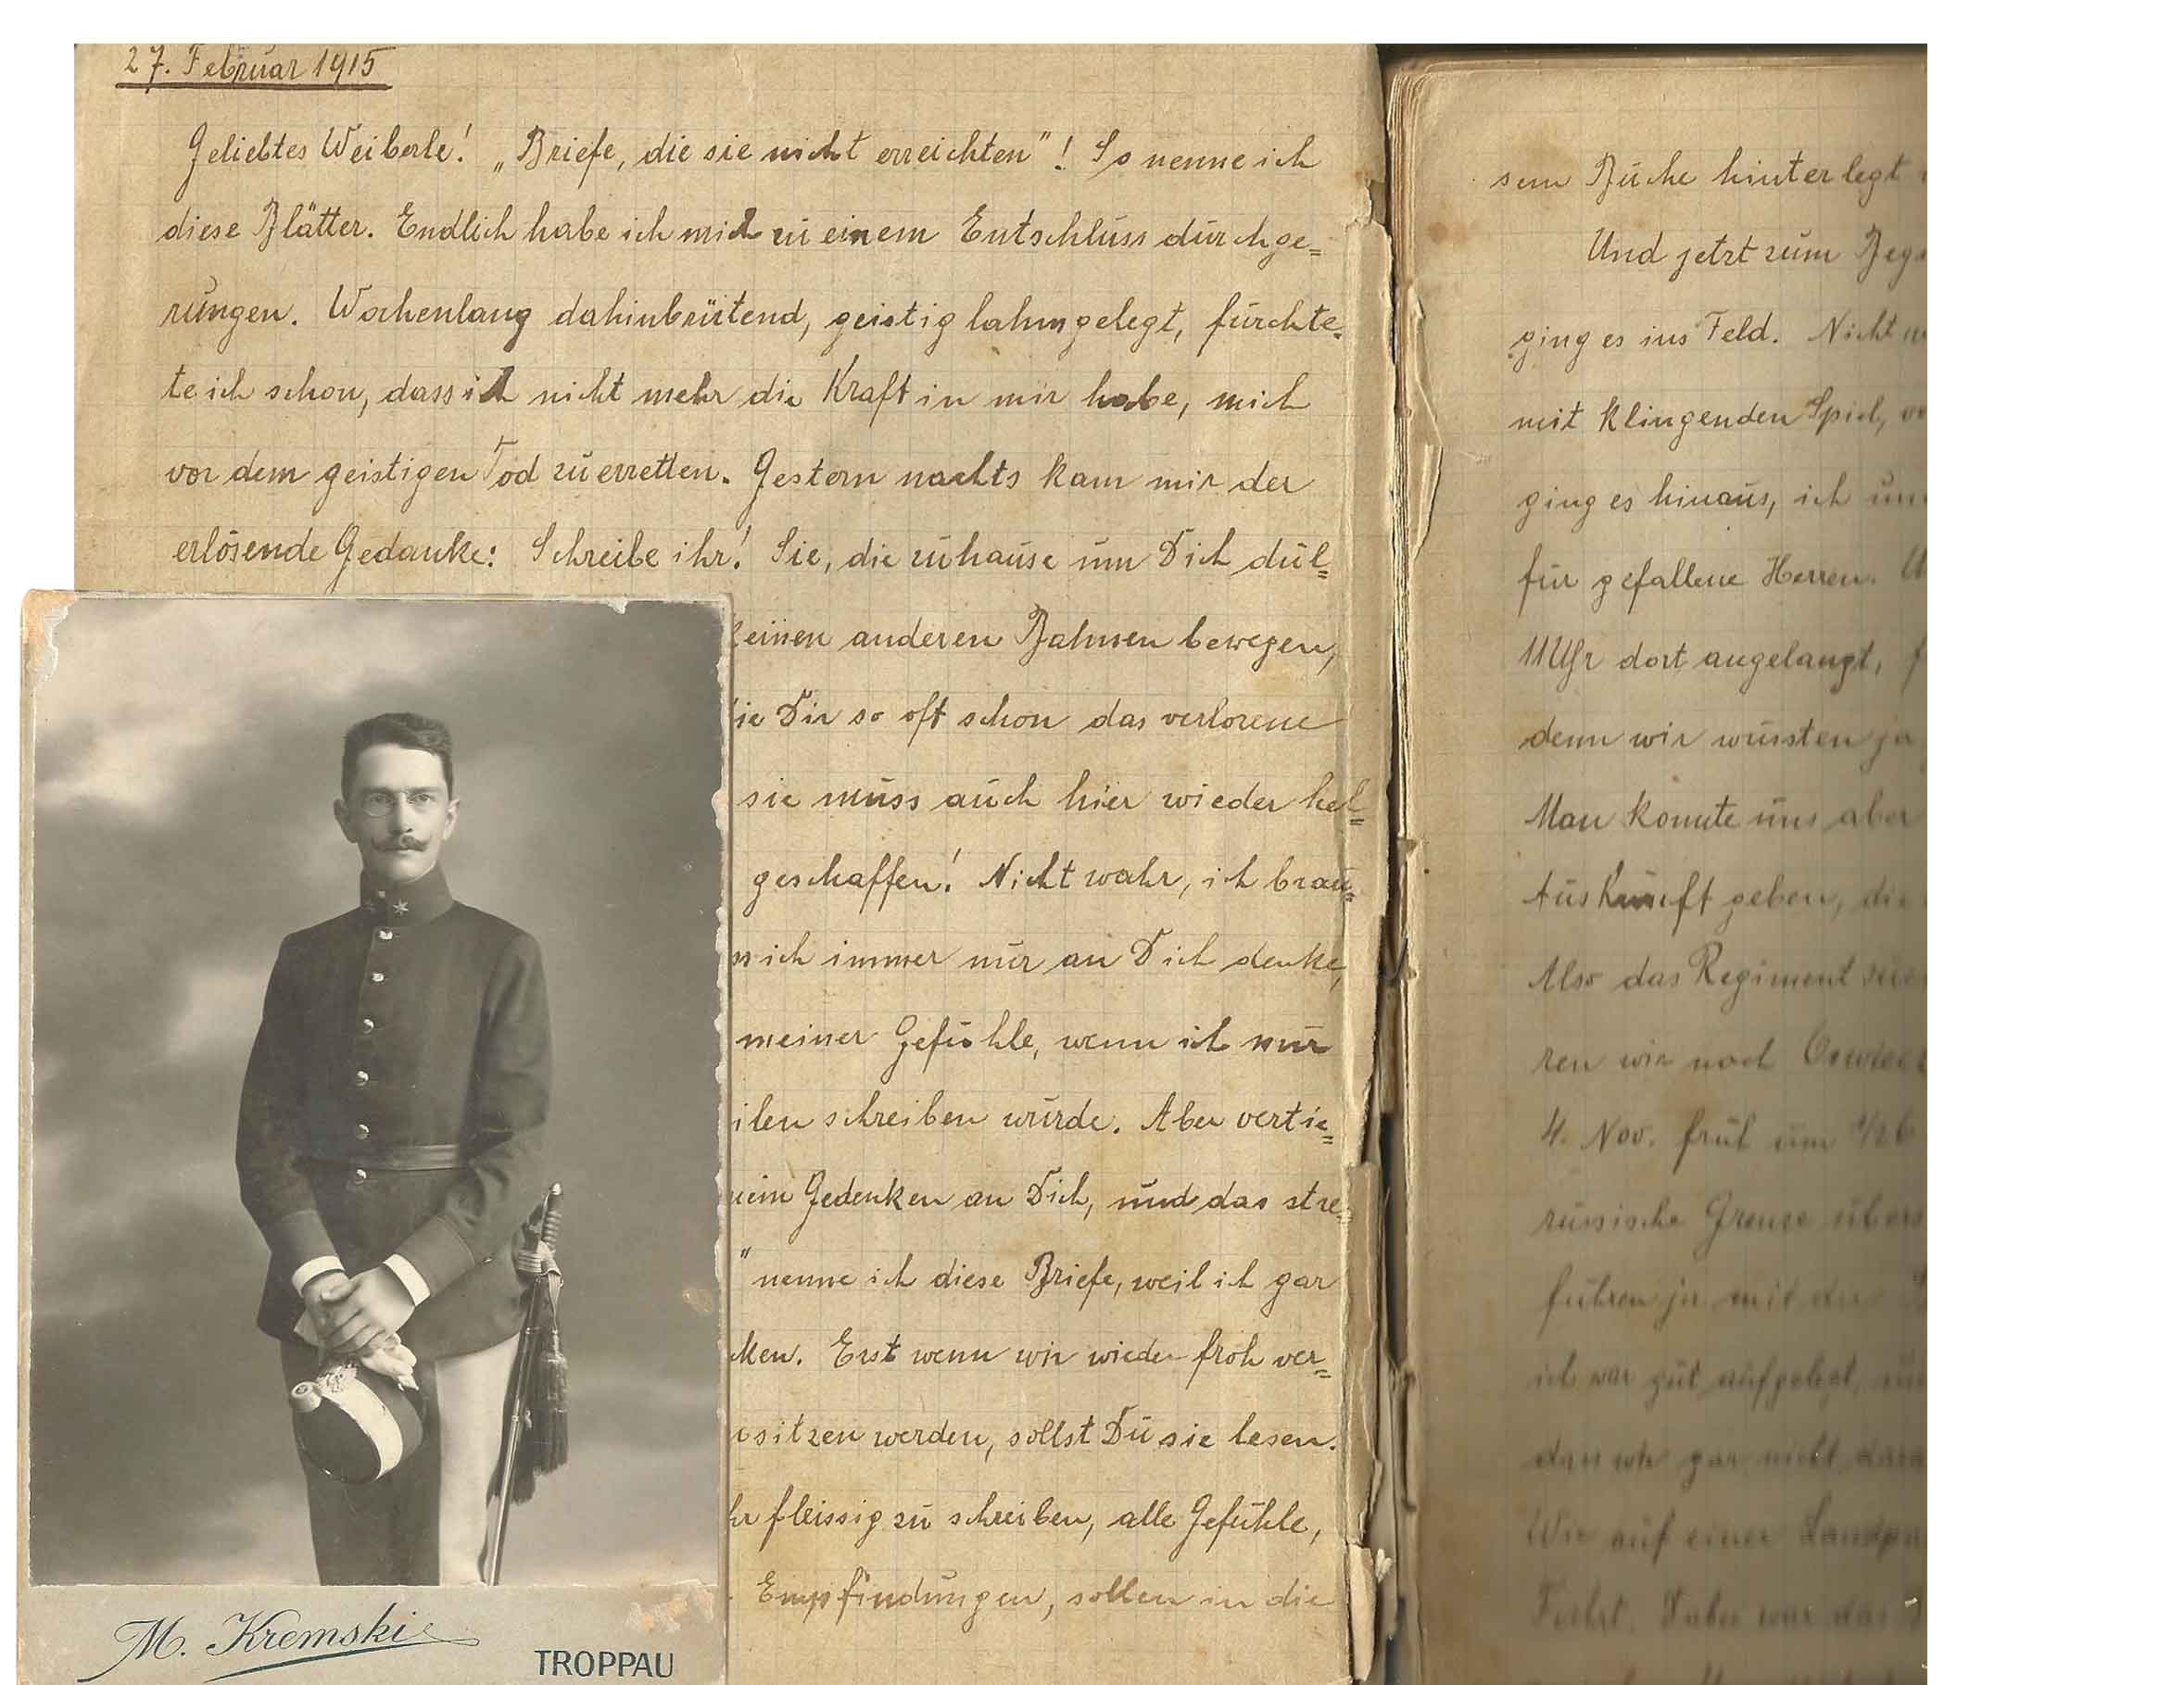 27. Februar 1915
Geliebtes Weiberle! „Briefe, die sie nicht erreichten"! So nenne ich
diese Blätter. Endlich habe ich mich zu einem Entschluss durchge=
rungen. Wochenlang dahinbrütend, geistig lahmgelegt, fürchte=
te ich schon, dass ich nicht mehr die Kraft in mir habe, mich
vor dem geistigen Tod zu erretten. Gestern nachts kam mir der
erlösende Gedanke: Schreibe ihr! Sie, die zuhause um Dich dul=
einen anderen Bahnen bewegen,
ie Dir so oft schon das verlorene
sie muss auch hier wieder hel=
geschaffen! Nicht wahr, ich brau=
ich immer nur an Dich denke,
meiner Gefühle, wenn ich nur
ilen schreiben würde. Aber vertie=
ein Gedenken an Dich, und das stre=
" nenne ich diese Briefe, weil ich gar
ken. Erst wenn wir wieder froh ver=
sitzen werden, sollst Du sie lesen.
hr fleissig zu schreiben, alle Gefühle,
Empfindungen, sollen in die
M. Kremski
TROPPAU
sem Buche hinterlegt
Und jetzt zum
ging es ins Feld. Nicht
mit klingenden Spiel,
ging es hinaus, ich
für gefallene Herren.
11 Uhr dort angelangt,
denn wir wussten ja
Man konnte uns aber
Auskunft geben, die
Also das Regiment
ren wir noch
4. Nov. früh um 1/2 6
russische Grenze
führen ja mit der
ich war gut aufgelegt,
dass wir gar nicht
Wie auf einer
Fahrt. Dabei war das